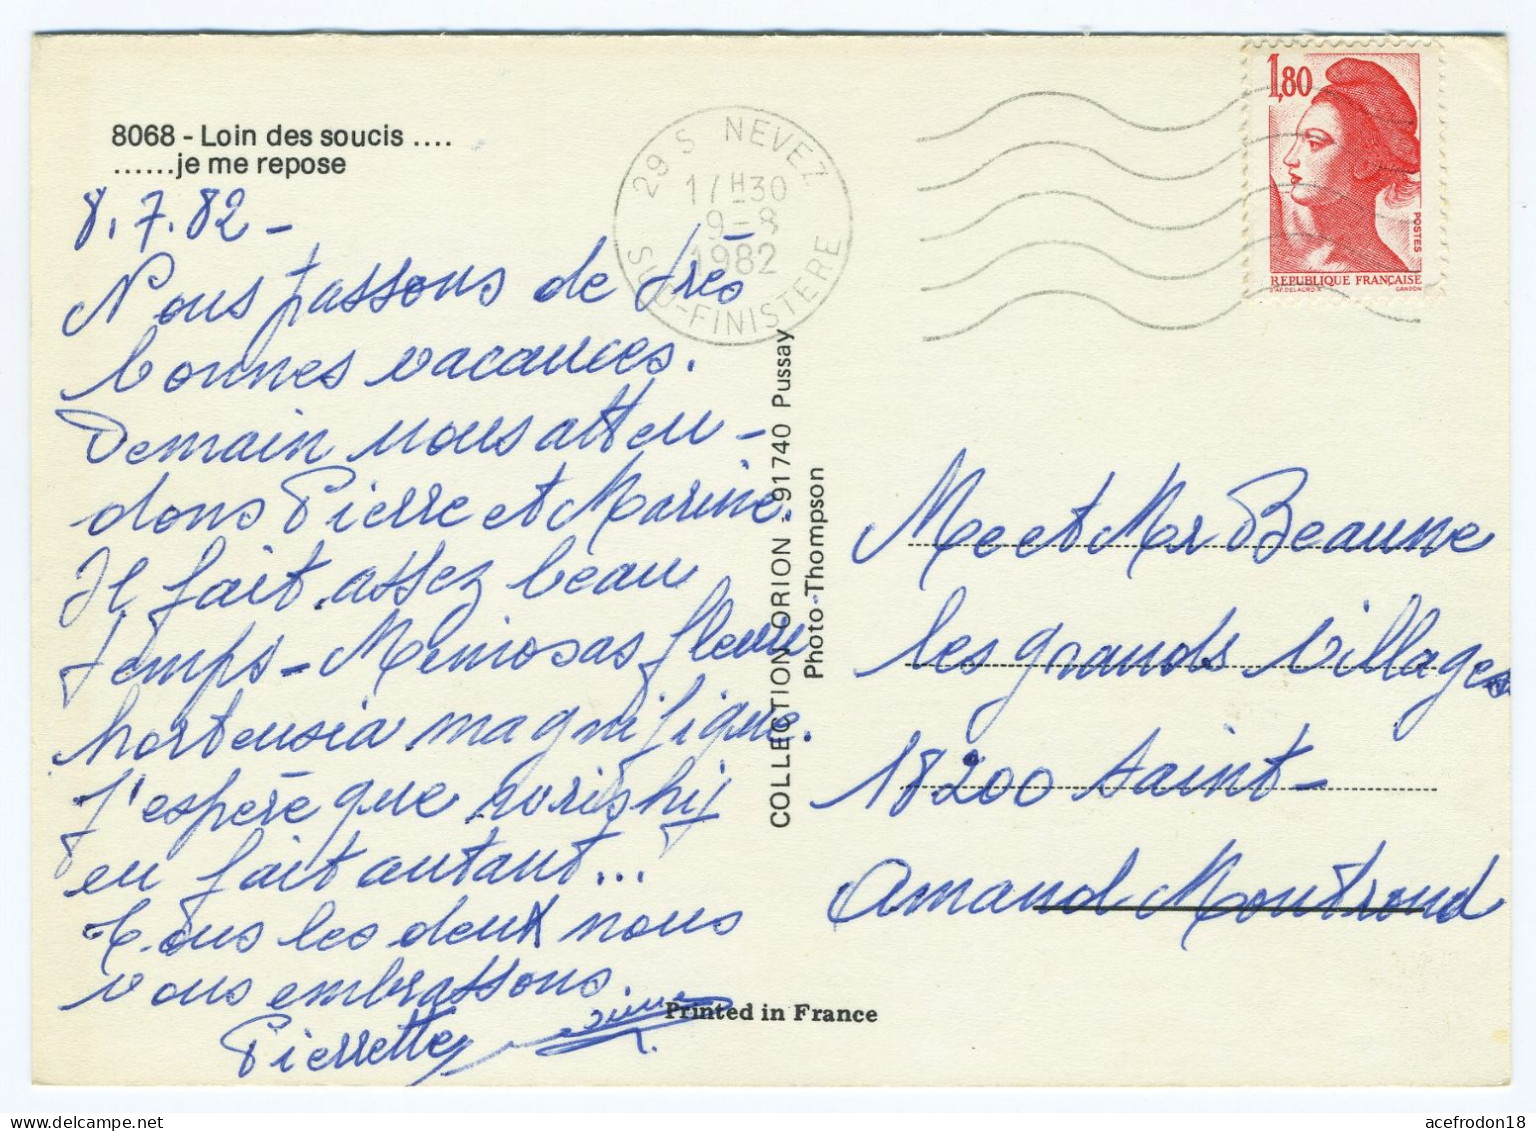 8068 - Loin des soucis ....
......je me repose
8.7.82 -
Nous passons de très
bonnes vacances.
Demain nous atten-
dons Pierre et Marine.
Il fait assez beau
temps - Mimosas fleuris
hortensia magnifique.
J'espère que
en fait autant...
Tous les deux nous
vous embrassons.
Pierrette
29 S NEVEZ
17H30
9-8
1982
SUD-FINISTERE
1,80
POSTES
REPUBLIQUE FRANÇAISE
D'AP. DELACROIX GANDON
COLLECTION ORION - 91740 Pussay
Photo-Thompson
Me et Mr Beaune
les grands Villages
18200 Saint-
Amand Montrond
Printed in France
acefrodon18